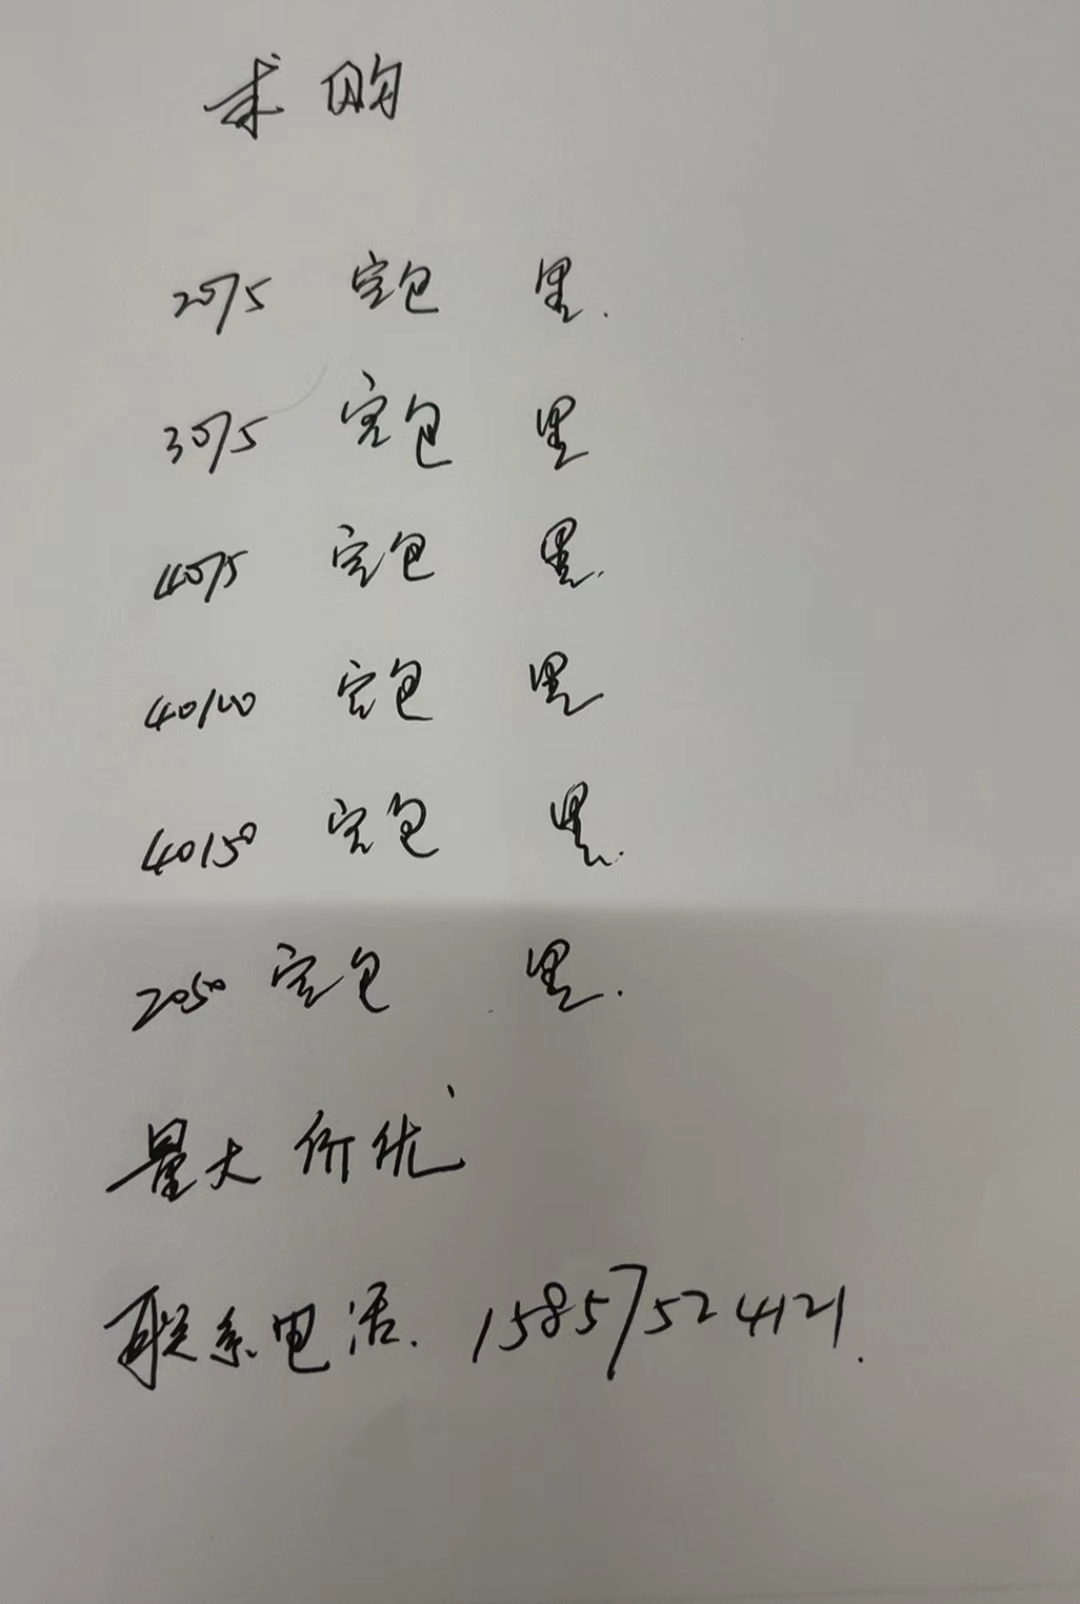 求购
2075 空包 黑.
3075 空包 黑
4075 空包 黑.
40100 空包 黑
40150 空包 黑.
2050 空包 黑.
量大价优
联系电话. 15857524121.